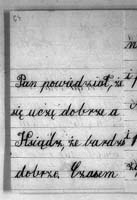 Pan powiedział, że
się uczę dobrze a
Ksiądz, że bardzo
dobrze. Czasem